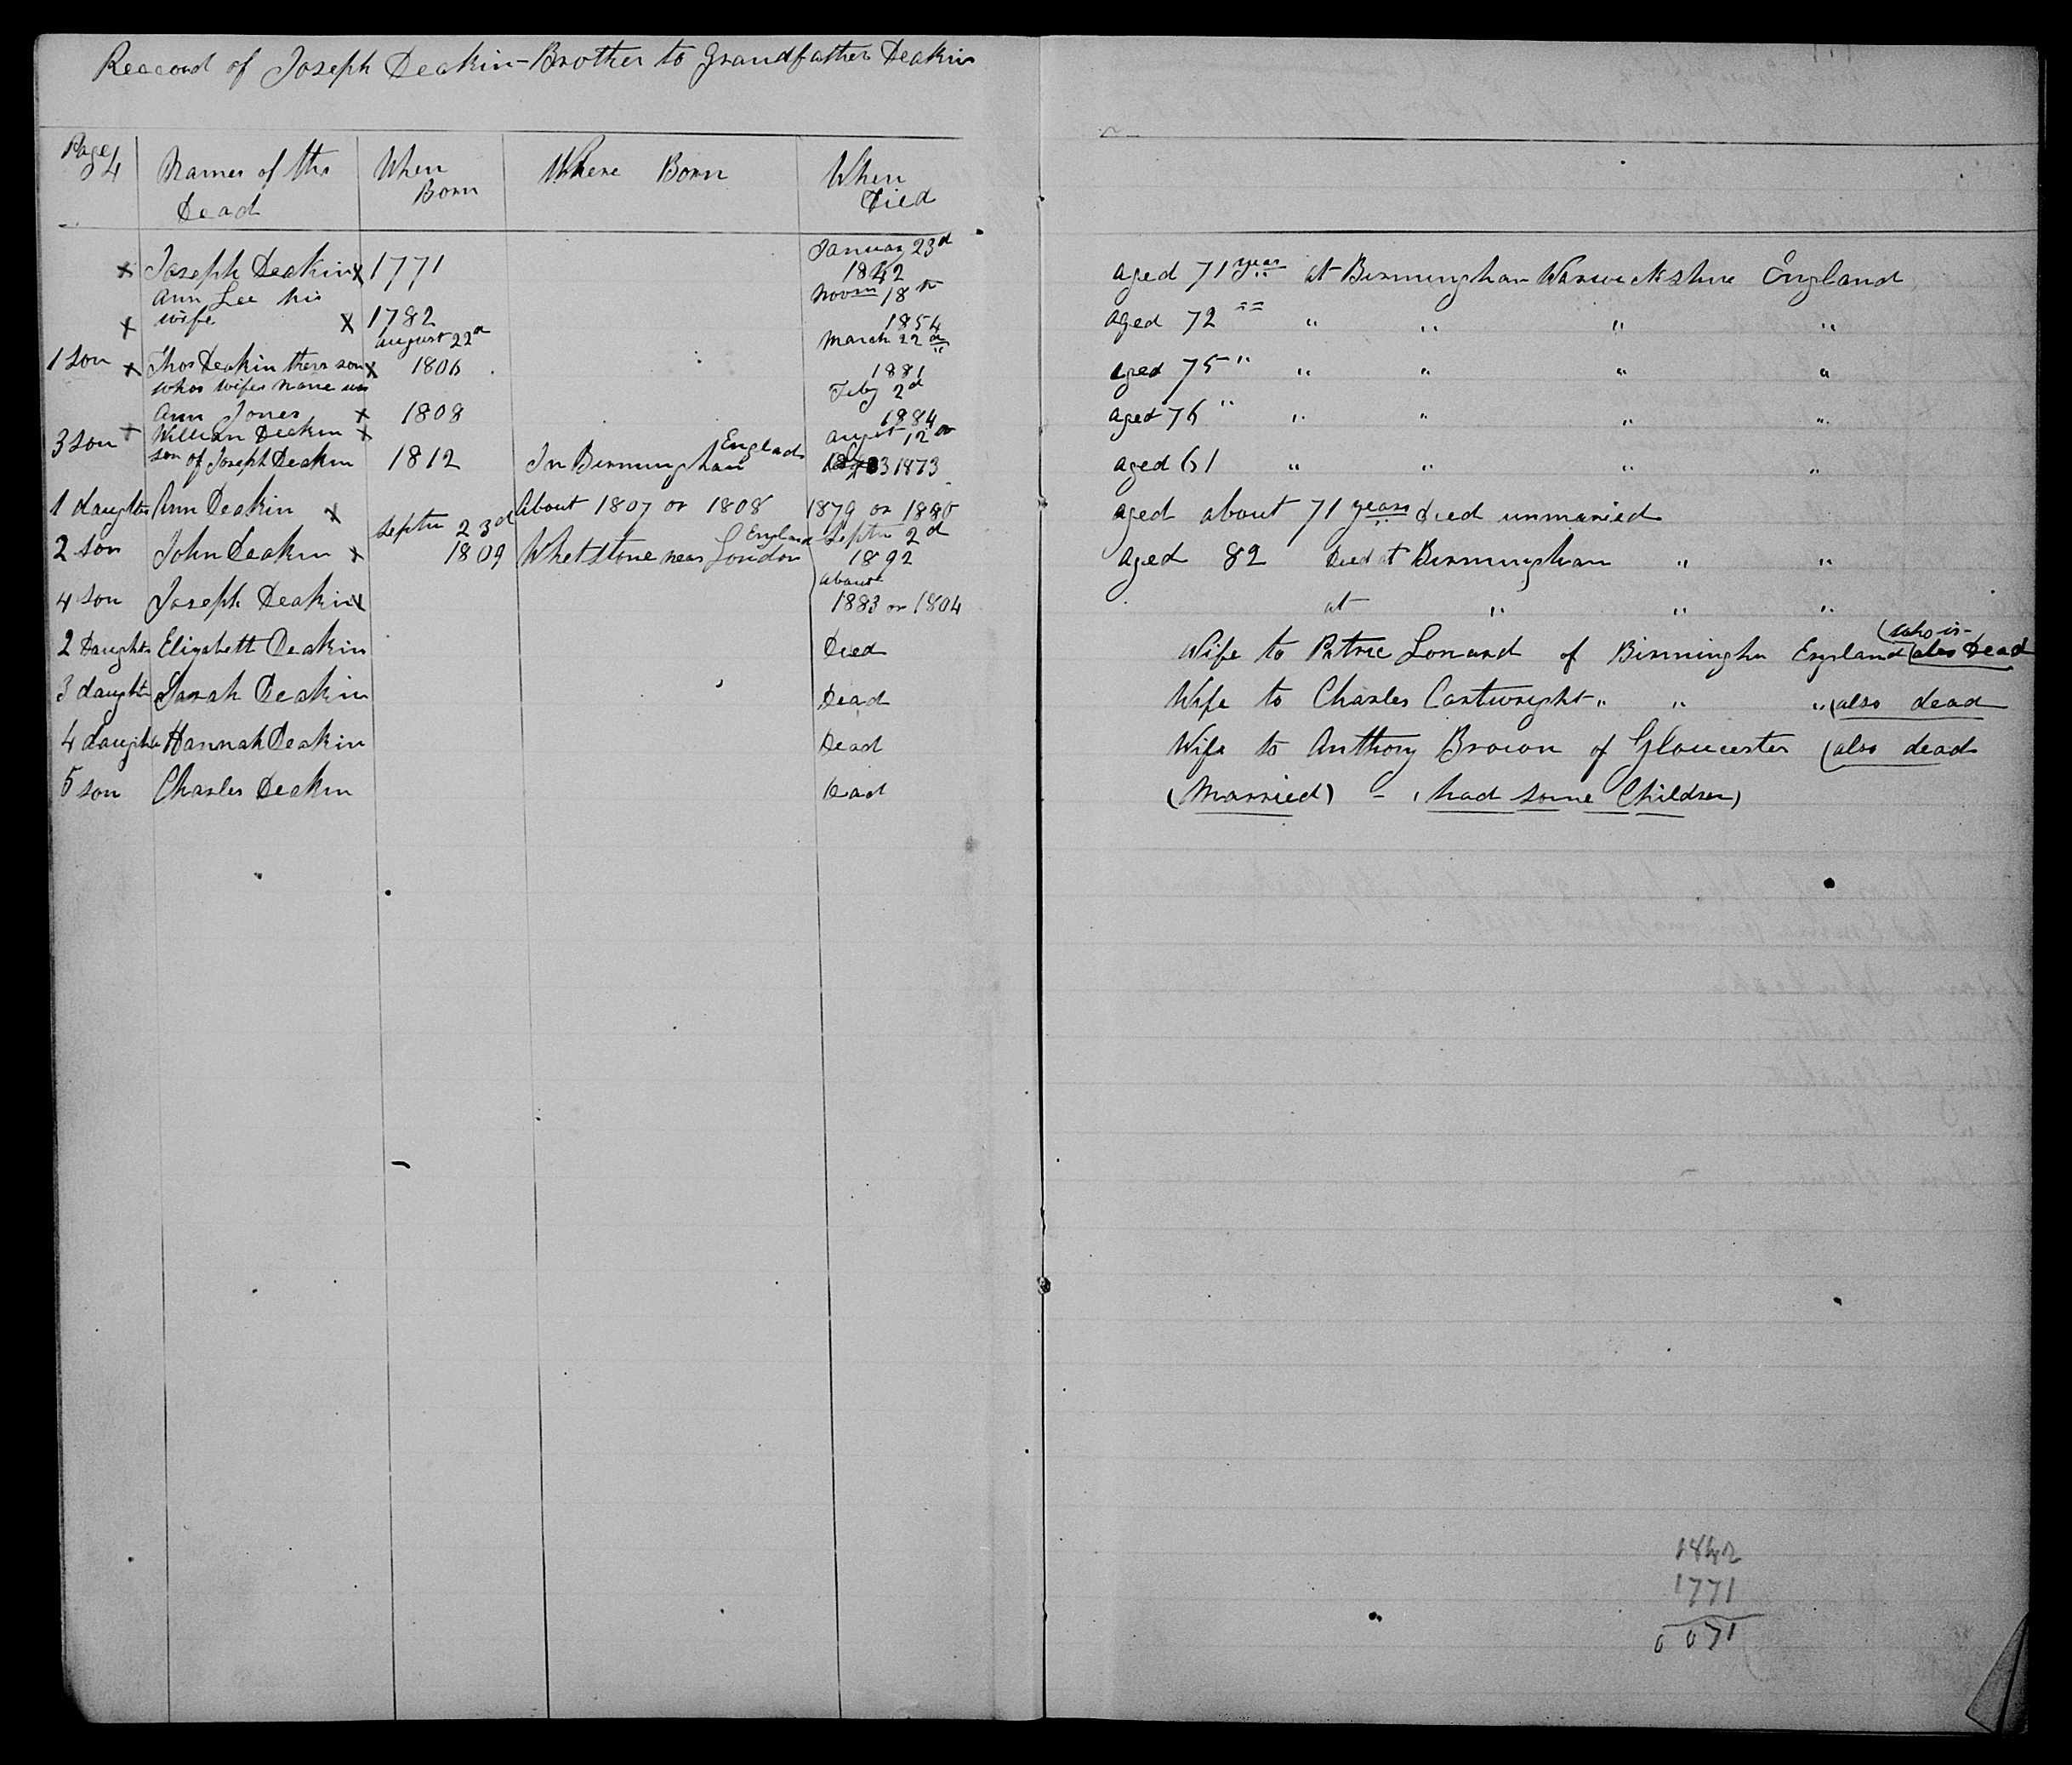 Reccord of Joseph Deakin - Brother to Grandfather Deakin
Page 4 Names of the Dead When Born Where Born When Died
x Joseph Deakin x 1771 January 23d 1842 aged 71 year at Birmingham Warwickshire England
x Ann Lee his wife x 1782 Novm 18th 1854 aged 72 " " " " "
1 son x Thos Deakin there son x August 22d 1806 March 22d 1881 aged 75 " " " " "
whos wifes name was
Ann Jones x 1808 Feby 2d 1884 aged 76 " " " " "
3 son + William Deakin x
son of Joseph Deakin 1812 In Birmingham England August 12th 1873 aged 61 " " " "
1 daughter Ann Deakin x About 1807 or 1808 1879 or 1880 aged about 71 years died unmaried
2 son John Deakin x Septm 23d 1809 Whetstone near London England Septm 2d 1892 Aged 82 Died at Birmingham " "
4 son Joseph Deakin x about 1883 or 1804 at " " "
2 Daughter Elizabett Deakin Died Wife to Patric Lonard of Birmingha England (who is also Dead
3 daughter Sarah Deakin Dead Wife to Charles Cartwright " " " (also dead
4 daughter Hannah Deakin Dead Wife to Anthony Brown of Gloucester (also dead
5 son Charles Deakin Dead (Married) - (had some Children)
1842
1771
0 071